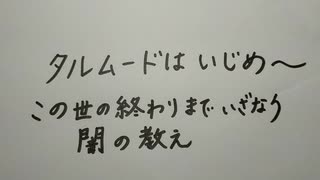 タルムードは いじめ〜
この世の終わりまで いざなう
闇の教え